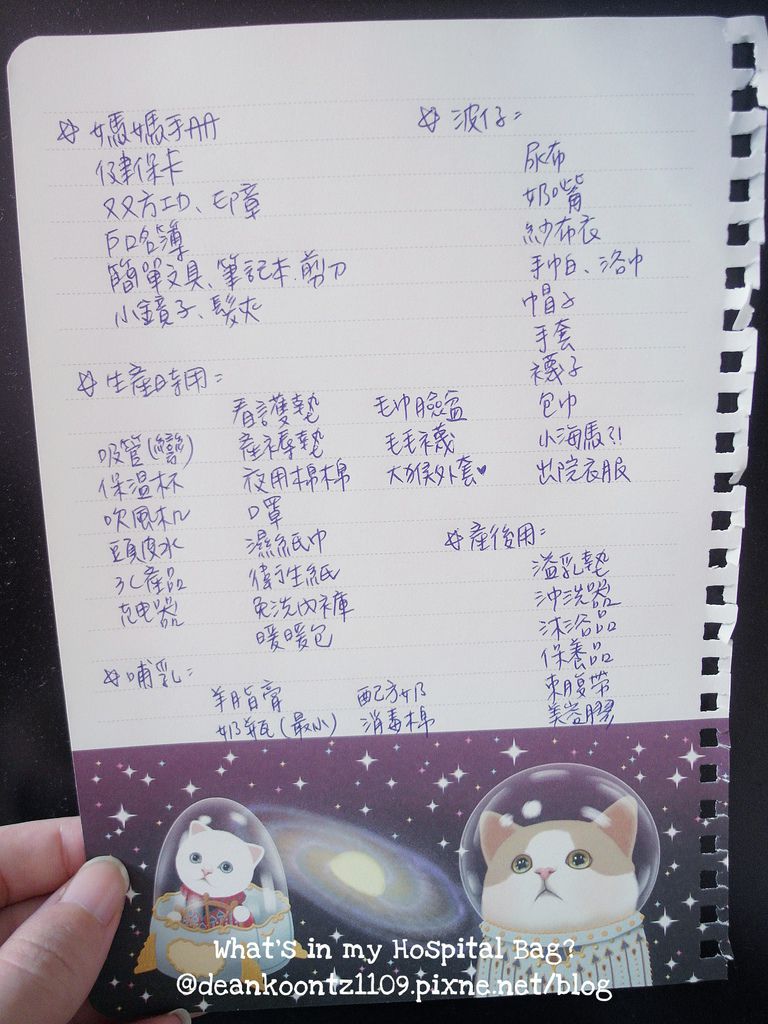 ☆ 媽媽手冊
健保卡
双方ID、印章
戶口名簿
簡單文具、筆記本、剪刀
小鏡子、髮夾
☆ 波仔:
尿布
奶嘴
紗布衣
手帕、浴巾
帽子
手套
襪子
包巾
小海馬?!
出院衣服
☆ 生產時用:
吸管(彎)
保溫杯
吹風机
頭皮水
3C產品
充電器
看護墊
產褥墊
夜用棉棉
口罩
濕紙巾
衛生紙
免洗內褲
暖暖包
毛巾臉盆
毛毛襪
大猴外套♥
☆ 產後用:
溢乳墊
沖洗器
沐浴品
保養品
束腹帶
美容膠
☆ 哺乳:
羊脂膏
奶瓶(最小)
配方奶
消毒棉
What's in my Hospital Bag?
@deankoontz1109.pixne.net/blog